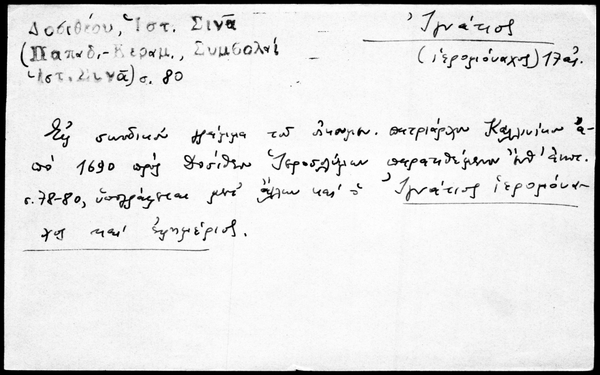 Δοσιθέου, Ἱστ. Σινᾶ
(Παπαδ.-Κεραμ., Συμβολαί
Ἱστ. Σινᾶ) σ. 80
Ἰγνάτιος
(ἱερομόναχος) 17 αἰ.
Εἰς συνοδικόν γράμμα τοῦ Οἰκουμ. πατριάρχου Καλλινίκου ἀ-
πό 1690 πρός Δοσίθεον Ἱεροσολύμων παρατιθέμενον
σ. 78-80, ὑπογράφεται μετ' ἄλλων καί ὁ Ἰγνάτιος ἱερομόνα-
χος καί ἐφημέριος.